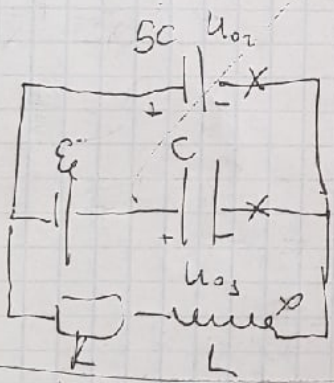 5C U₀₂
+ -
ℰ C
+ -
U₀₁
L